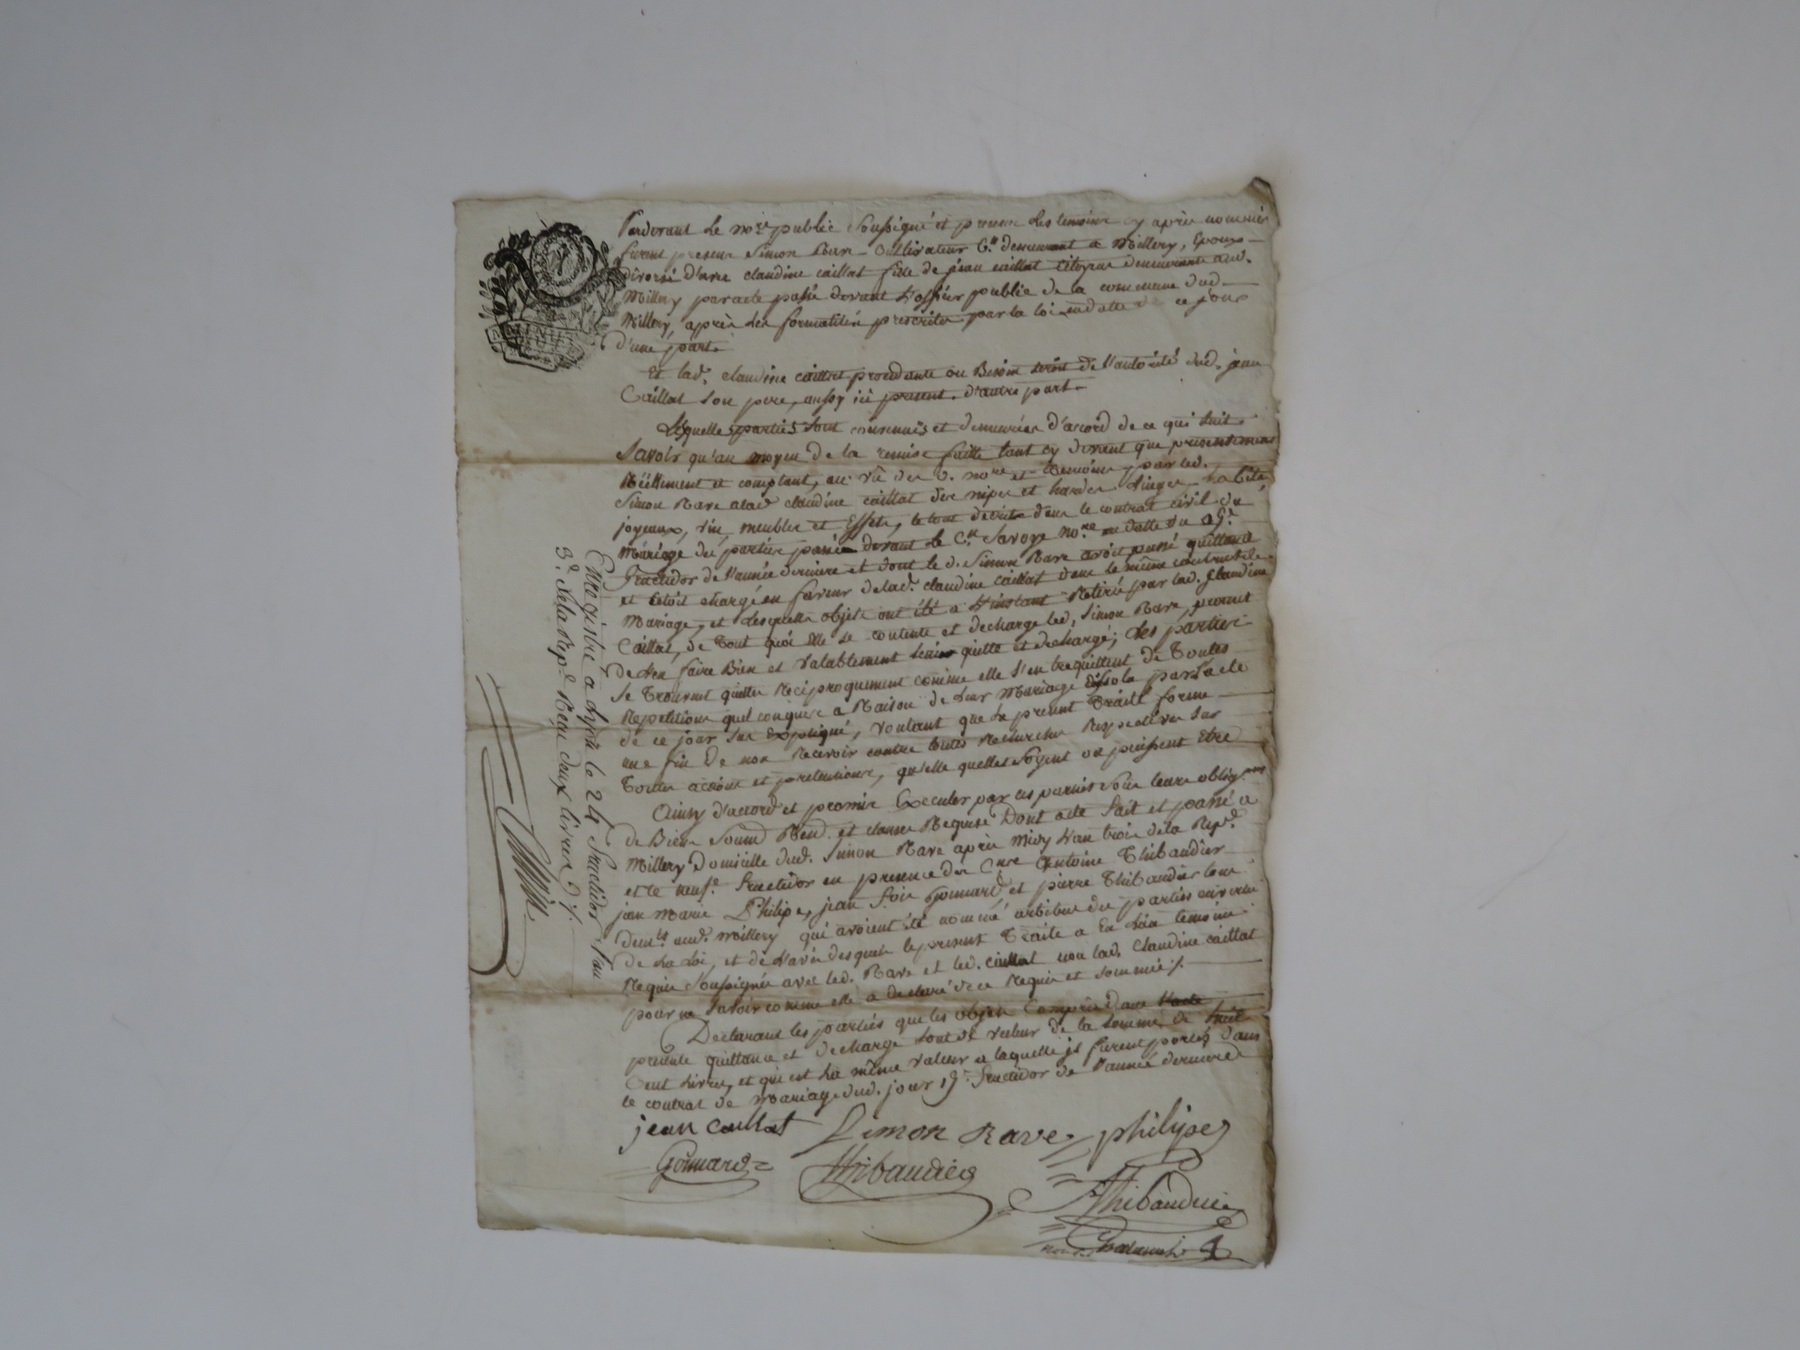 Pardevant le no.re public soussigné et presence des temoins cy après nommés
furent presens Simon Rave Cultivateur C.n demeurant a Millery, Epoux
divorcé d'avec claudine caillat fille de jean caillat citoyenne demeurante aud.
Millery par acte passé devant L'officier public de la commune dud.
Millery, après les formalités prescrites par la loi en datte de ce jour
d'une part.
Et lad. claudine caillat procedante ou Besoin seroit de l'autorité dud. jean
Caillat son pere, aussy ici present d'autre part.
Lesquelles parties sont convenues et demeurées d'accord de ce qui suit.
Savoir qu'au moyen de la remise faitte tant cy devant que presentement
Réellement et comptant, au vû des d. no.re et temoins, par led.
Simon Rave a lad. claudine caillat des nipes et hardes Linges habits,
joyeaux, vin, meubles et Effets, le tout decrits dans le contrat civil du
Mariage des parties passé devant le C.n Savoye no.re en datte du 19.e
fructidor de l'année derniere et dont le d. Simon Rave avoit passé quittance
et s'étoit chargé en faveur de lad. claudine caillat dans le même contrat de
Mariage, et lesquels objets ont été a L'instant Retirés par lad. Claudine
Caillat, de Tout quoi elle se contente et decharge led. Simon Rave, promet
de l'en faire Bien et valablement tenir quitte et dechargé; Les parties
se Trouvent quittes Réciproquement comme elle s'en trequittent de Toutes
Repetitions quelconques a Raison de Leur Mariage dissolu par l'acte
de ce jour sus Expliqué, voulant que Le present Traité forme
une fin de non Recevoir contre toutes Recherches Respectives sur
Toutes actions et pretentions, qu'elle quelles soyent ou puissent Etre
Ainsy d'accord et promis Executer par ces parties sous leurs oblig.ons
de Biens Soum. Ren. et clauses Requises Dont acte fait et passé a
Millery Domicille dud. Simon Rave après midy L'an trois de la Rep.e
et le neuf.e fructidor en presence des C.ens Antoine Thibaudier
jean Marie Philipe, jean Gommard et pierre Thibaudier tous
dem.ts aud. Millery qui avoient été nommés arbitres des parties
de La Loi, et de L'avis desquels le present Traité a Eu Lieu temoins
Requis soussignés avec led. Rave et led. caillat non lad. Claudine caillat
pour ne savoir comme elle a declaré de ce Requise et sommée ./.
Declarant les parties que les objets Compris dans
presente quittance et decharge sont de valeur de la somme de huit
Cent Livres, et qui est La même valeur a laquelle ils furent portés dans
le contrat de Mariage dud. jour 19.e fructidor de l'année derniere
jean caillat Simon Rave philipe
Gommard Thibaudier
Thibaudier
Enregistré à Lyon le 24 fructidor l'an
3.e de la Rep.e Reçu deux livres ./.